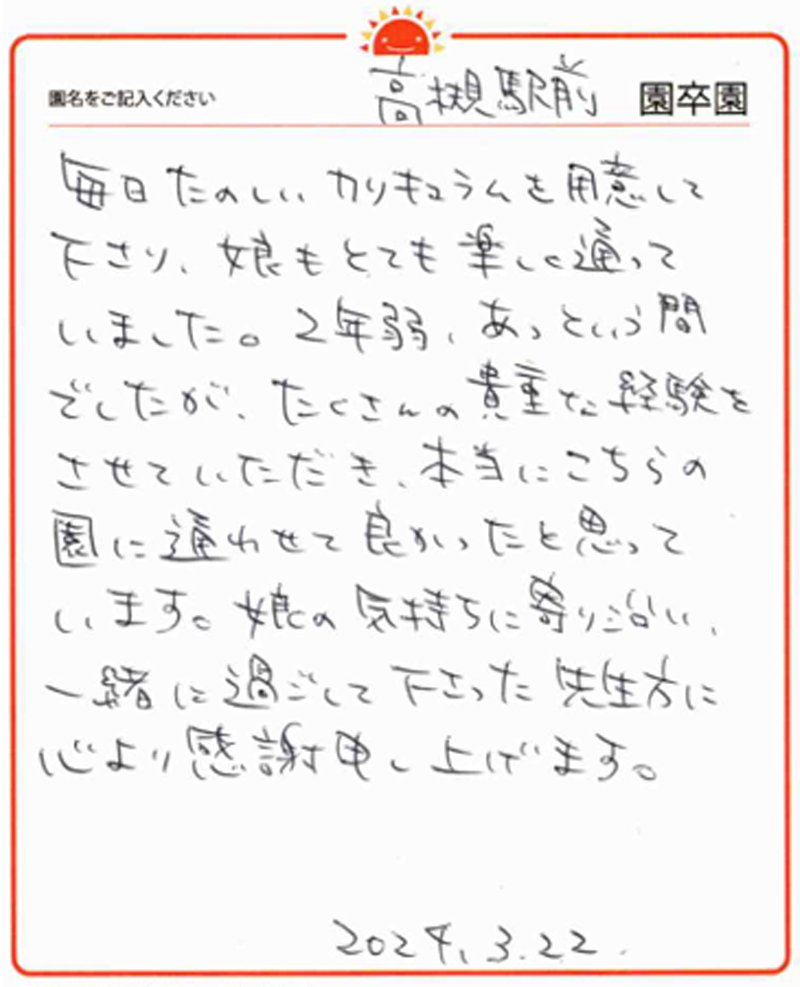 園名をご記入ください 高槻駅前 園卒園
毎日たのしいカリキュラムを用意して
下さり、娘もとても楽しく通って
いました。2年弱、あっという間
でしたが、たくさんの貴重な経験を
させていただき、本当にこちらの
園に通わせて良かったと思って
います。娘の気持ちに寄り沿い、
一緒に過ごして下さった先生方に
心より感謝申し上げます。
2024.3.22.